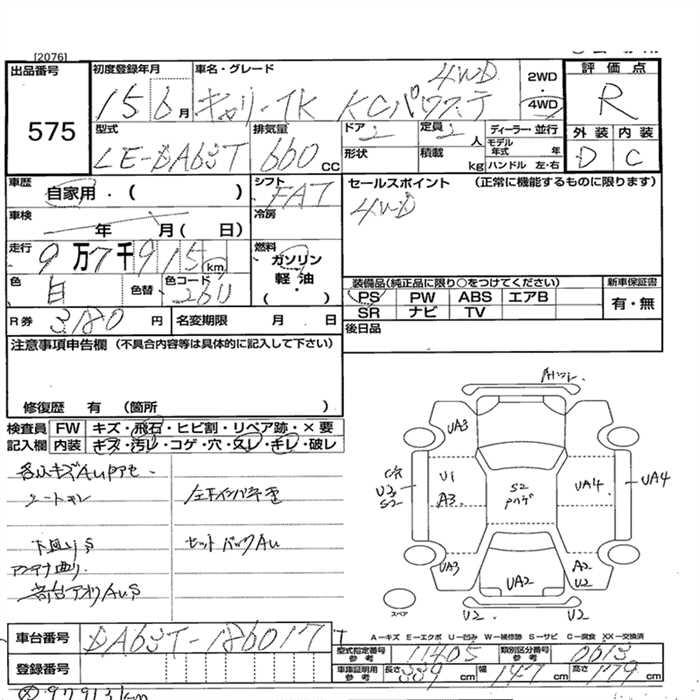 [2076]
出品番号
575
初度登録年月
15 6 月
車名・グレード
キャリーTK KCパワステ
4WD
2WD
・
4WD
評価点
R
外装 内装
D C
型式
LE-DA63T
排気量
660 CC
ドア
2
定員
2 人
形状
積載
kg
ディーラー・並行
モデル年式 年
ハンドル 左・右
車歴
自家用・( )
シフト
FAT
車検
年 月( 日)
冷房
走行
9万7千915km
燃料
ガソリン
軽油
( ・ )
色
白
色替
色コード
26U
R券 3180 円
名変期限 月 日
セールスポイント (正常に機能するものに限ります)
4WD
装備品(純正品に限り○をつけてください)
PS PW ABS エアB
SR ナビ TV
新車保証書
有・無
後日品
注意事項申告欄 (不具合内容等は具体的に記入して下さい)
修復歴 有 (箇所 )
検査員記入欄
FW キズ・飛石・ヒビ割・リペア跡・×要
内装 キズ・汚レ・コゲ・穴・スレ・キレ・破レ
シートキレ
下廻りS
アンテナ曲り
セットバックAu
UA3
U1
A3
UA3
S2
UA4
UA4
U2
S2
A2
U2
UA2
U2
U2
スペア
A-キズ E-エクボ U-凹み W-補修跡 S-サビ C-腐食 XX-交換済
車台番号
DA63T-186017
登録番号
型式指定番号 参考
11405
類別区分番号 参考
0013
車庫証明用 参考
長さ 339 cm
幅 147 cm
高さ 179 cm
97913km